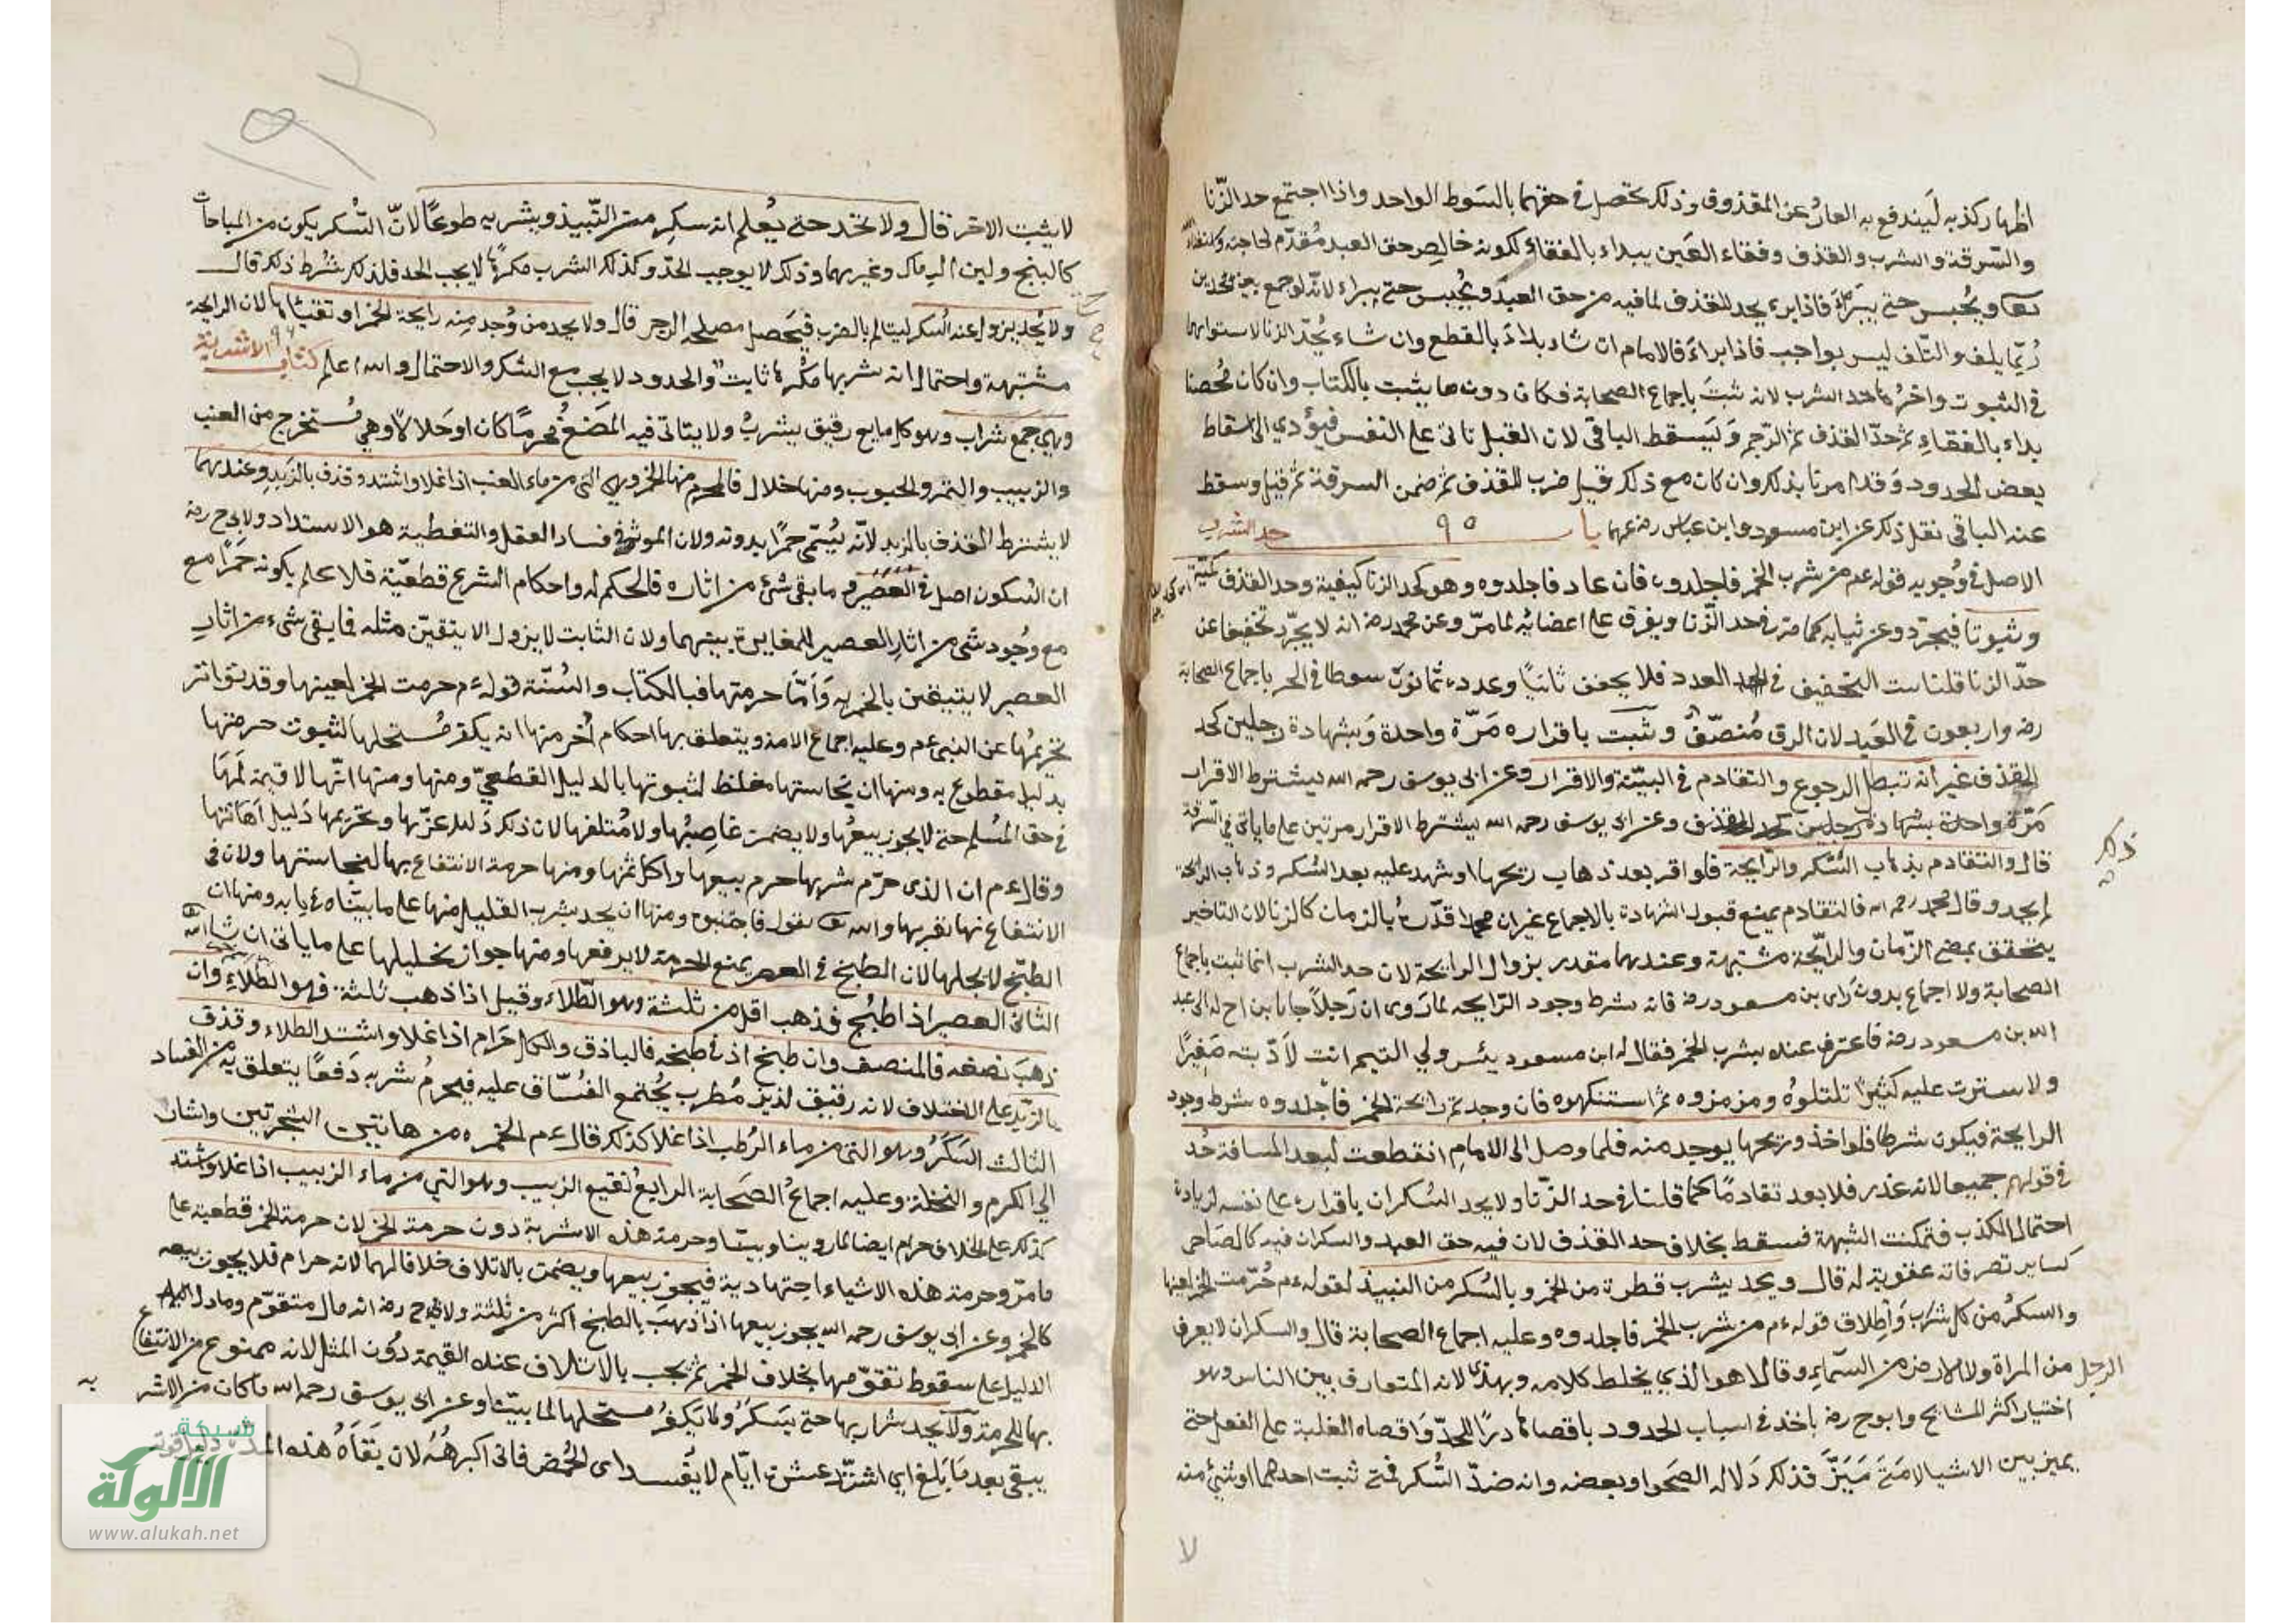 اظهار كذبه ليندفع به العار عن المقذوف وذلك يحصل في حقهما بالسوط الواحد واذا اجتمع حد الزنا
والسرقة والشرب والقذف وفقاء العين يبداء بالفقاء لكونه خالص حق العبد مقدم لحاجته
ويحبس حتى يبراء فاذا برء يحد للقذف لما فيه من حق العبد ويحبس حتى يبراء لانه لو جمع بين الحدين
ربما يلف والتلف ليس بواجب فاذا ابراء فالامام ان شاء بداء بالقطع وان شاء بحد الزنا لاستوائهما
في الثبوت واخرها حد الشرب لانه ثبت باجماع الصحابة فكان دون ما يثبت بالكتاب وان كان محصنا
بداء بالفقاء ثم حد القذف ثم الرجم ويسقط الباقي لان القتل تاتى على النفس فيؤدي الى اسقاط
بعض الحدود وقد امرنا بذلك وان كان مع ذلك قتل ضرب للقذف ثم ضمن السرقة ثم قتل وسقط
عنه الباقي نقل ذلك عن ابن مسعود وابن عباس رضي عنهما باب ٩٥ حد الشرب
الاصل في وجوبه قوله عم من شرب الخمر فاجلدوه فان عاد فاجلدوه وهو كحد الزنا كيفية وحد القذف كمية
وثبوتا فيجرد عن ثيابه كما مر في حد الزنا ويفرق على اعضائه لما مر وعن محمد رضه انه لا يجرد تخفيفا عن
حد الزنا قلنا ثبت التخفيف في العدد فلا يخفف ثانيا وعدده ثمانون سوطا في الحر باجماع الصحابة
رضه واربعون في العبد لان الرق منصف وثبت باقراره مرة واحدة وبشهادة رجلين كحد
القذف غير انه تبطل الرجوع والتقادم في البينة والاقرار وعن ابي يوسف رحمه الله يشترط الاقرار
مرة واحدة بشهادة رجلين كحد القذف وعن ابي يوسف رحمه الله يشترط الاقرار مرتين على ما ياتي في السرقة
قال والتقادم بذهاب السكر والرايحة فلو اقر بعد ذهاب ريحها او شهد عليه بعد السكر وذهاب الرايحة
لم يحد وقال محمد رحمه الله فالتقادم يمنع قبول الشهادة بالاجماع غير ان محمدا قدره بالزمان كالزنا لان التاخير
يتحقق بمضي الزمان والرايحة مشتبهة وعندهما مقدر بزوال الرايحة لان حد الشرب انما ثبت باجماع
الصحابة ولا اجماع بدون راى بن مسعود رضه فانه شرط وجود الرايحة لما روى ان رجلا جا بابن اخ له الى عبد
الله بن مسعود رضه فاعترف عنده بشرب الخمر فقال له ابن مسعود بئس ولي اليتيم انت لا ادبته صغيرا
ولا سترت عليه كبيرا تلتلوه ومزمزوه ثم استنكهوه فان وجدتم رايحة الخمر فاجلدوه شرط وجود
الرايحة فيكون شرطا فلو اخذ وريحها يوجد منه فلما وصل الى الامام انقطعت لبعد المسافة حد
في قولهم جميعا لانه عذر فلا يعد تقادما كما قلنا في حد الزنا ولا يحد السكران باقراره على نفسه لزيادة
احتمال الكذب فتمكنت الشبهة فسقط بخلاف حد القذف لان فيه حق العبد والسكران فيه كالصاحي
كساير تصرفاته عقوبة له قال ويحد بشرب قطرة من الخمر وبالسكر من النبيذ لقوله عم حرمت الخمر لعينها
والسكر من كل شراب واطلاق قوله عم من شرب الخمر فاجلدوه وعليه اجماع الصحابة قال والسكران لا يعرف
الرجل من المراة ولا الارض من السماء وقالا هو الذي يخلط كلامه ويهذى لانه المتعارف بين الناس وهو
اختيار اكثر المشايخ وابو ح رضه ياخذ في اسباب الحدود باقصاها درأ للحد واقصاه الغلبة على العقل حتى
يميز بين الاشيا لا متى ميز فذلك دلالة الصحو او بعضه وانه ضد السكر فمتى ثبت احدهما او شئ منه
ذكر
لا
لا يثبت الاخر قال ولا يحد حتى يعلم انه سكر من النبيذ وبشربه طوعا لان السكر يكون من المباحات
كالبنج ولبن الرماك وغيرهما وذلك لا يوجب الحد وكذلك الشرب مكرها لا يجب الحد فلذلك شرط ذلك قال
ولا يحد يزول عنه السكر ليتالم بالضرب فيحصل مصلحة الزجر قال ولا يحد من وجد منه رايحة الخمر او تقيئاها لان الرايحة
مشتبهة واحتمال انه شربها مكرها ثابت والحدود لا يجب مع الشك والاحتمال والله اعلم كتاب ٩٦ الاشربة
وهي جمع شراب وهو كل مايع رقيق يشرب ولا يتاتى فيه المضغ محرما كان او حلالا وهي تستخرج من العنب
والزبيب والتمر والحبوب ومنها حلال فالمحرم منها الخمر وهي التى من ماء العنب اذا غلا واشتد وقذف بالزبد وعندهما
لا يشترط القذف بالزبد لانه يسمى خمرا بدونه ولان الموثر في فساد العقل والتغطية هو الاشتداد ولابي ح رضه
ان السكون اصل في العصير وما بقى شئ من اثاره فالحكم له واحكام الشرع قطعية فلا علم بكونه خمرا مع
مع وجود شئ من اثار العصير للمغايرة بينهما ولان الثابت لا يزول الا بيقين مثله فما بقى شئ من اثار
العصير لا يتيقن بالخمرية واما حرمتها فبالكتاب والسنة قوله عم حرمت الخمر لعينها وقد تواتر
تحريمها عن النبي عم وعليه اجماع الامة ويتعلق بها احكام اخر منها انه يكفر مستحلها لثبوت حرمتها
بدليل مقطوع به ومنها ان نجاستها مغلظ لثبوتها بالدليل القطعي ومنها ومنها انها لا قيمة لها
في حق المسلم حتى لا يجوز بيعها ولا يضمن غاصبها ولا متلفها لان ذلك دليل عزتها وتحريمها دليل اهانتها
وقال عم ان الذى حرم شربها حرم بيعها واكل ثمنها ومنها حرمة الانتفاع بها لنجاستها ولان في
الانتفاع بها تقريبها والله تعا يقول فاجتنبوه ومنها ان يحد بشرب القليل منها على ما بيناه في بابه ومنها ان
الطبخ لا يحلها لان الطبخ في العصير يمنع الحرمة لا يرفعها ومنها جواز تخليلها على ما ياتى ان شا الله
الثانى العصير اذا طبخ فذهب اقل من ثلثة وهو الطلاء وقيل اذا ذهب ثلثة فهو الطلاء وان
ذهب نصفه فالمنصف وان طبخ ادنى طبخه فالباذق والكل حرام اذا غلا واشتد الطلاء وقذف
بالزبد على الاختلاف لانه رقيق لذيذ مطرب يجتمع الفساق عليه فيحرم شربه دفعا يتعلق به من الفساد
الثالث السكر وهو التى من ماء الرطب اذا غلا كذلك قال عم الخمر من هاتين الشجرتين واشار
الى الكرم والنخلة وعليه اجماع الصحابة الرابع نقيع الزبيب وهو التى من ماء الزبيب اذا غلا واشتد
كذلك على الخلاف حرام ايضا لما روينا وبينا وحرمة هذه الاشربة دون حرمة الخمر لان حرمة الخمر قطعية على
ما مر وحرمة هذه الاشياء اجتهادية فيجوز بيعها ويضمن بالاتلاف خلافا لهما لانه حرام فلا يجوز بيعه
كالخمر وعن ابي يوسف رحمه الله يجوز بيعها اذا ذهب بالطبخ اكثر من ثلثة ولابي ح رضه انه مال متقوم وما دل
الدليل على سقوط تقومها بخلاف الخمر ثم يجب بالاتلاف عنده القيمة دون المثل لانه ممنوع من الانتفاع
بها للحرمة ولا يحد شاربها حتى يسكر ولا يكفر مستحلها لما بينا وعن ابي يوسف رحمه الله ما كان من الاشر به
يبقى بعد ما يبلغ اي اشتد عشرة ايام لا يفسد اى الحمض فانى اكرهه لان بقاءه هذه المدة دليل قوته
شبكة
الألوكة
www.alukah.net